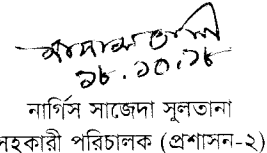 ১৮.১০.১৮
নার্গিস সাজেদা সুলতানা
সহকারী পরিচালক (প্রশাসন-২)